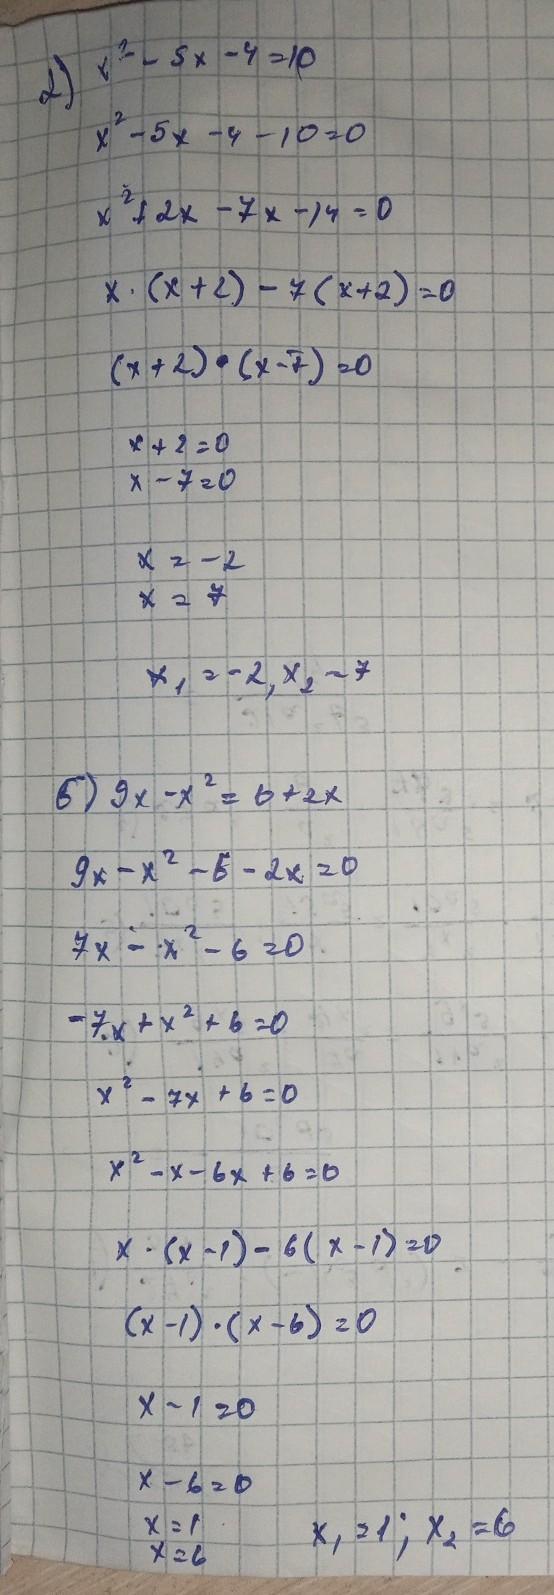 2) x² - 5x - 4 = 10
x² - 5x - 4 - 10 = 0
x² + 2x - 7x - 14 = 0
x · (x + 2) - 7 (x + 2) = 0
(x + 2) · (x - 7) = 0
x + 2 = 0
x - 7 = 0
x = -2
x = 7
x₁ = -2, x₂ = 7
б) 9x - x² = 6 + 2x
9x - x² - 6 - 2x = 0
7x - x² - 6 = 0
-7x + x² + 6 = 0
x² - 7x + 6 = 0
x² - x - 6x + 6 = 0
x · (x - 1) - 6 (x - 1) = 0
(x - 1) · (x - 6) = 0
x - 1 = 0
x - 6 = 0
x = 1
x = 6
x₁ = 1; x₂ = 6